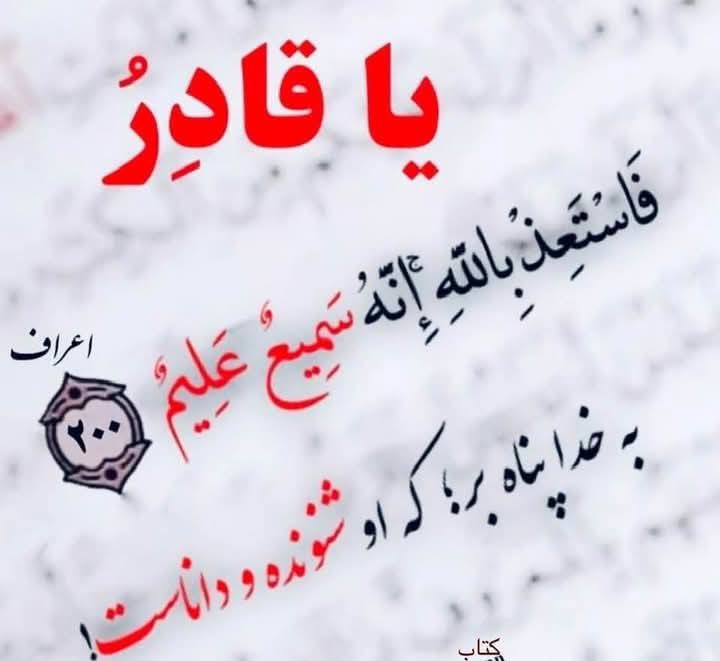 يا قادِرُ
فَاسْتَعِذْ بِاللَّهِ ۚ إِنَّهُ سَمِيعٌ عَلِيمٌ
اعراف
۲۰۰
به خدا پناه بر؛ که او شنونده و داناست!
کتاب